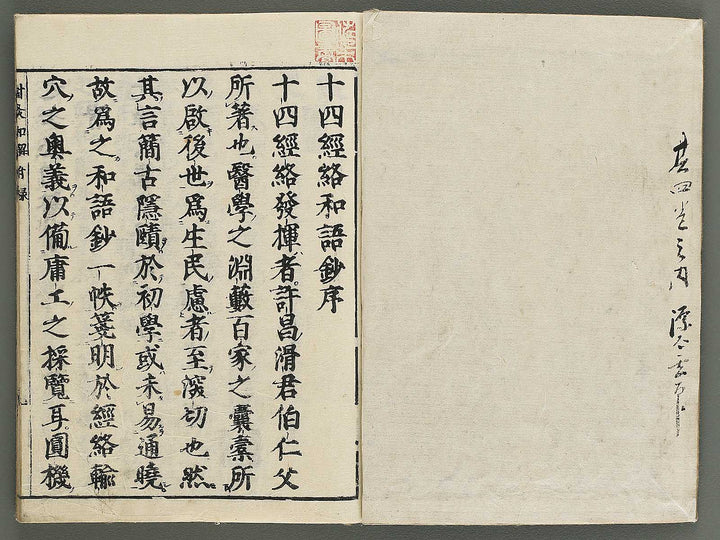 其四巻之内
十四經絡和語鈔序
十四經絡發揮者許昌滑君伯仁父
所著也醫學之淵藪百家之囊橐所
以啟後世爲生民慮者至深切也然
其言簡古隱賾於初學或未易通曉
故爲之和語鈔一帙箋明於經絡輸
穴之奧義以備庸工之採覽耳圓機